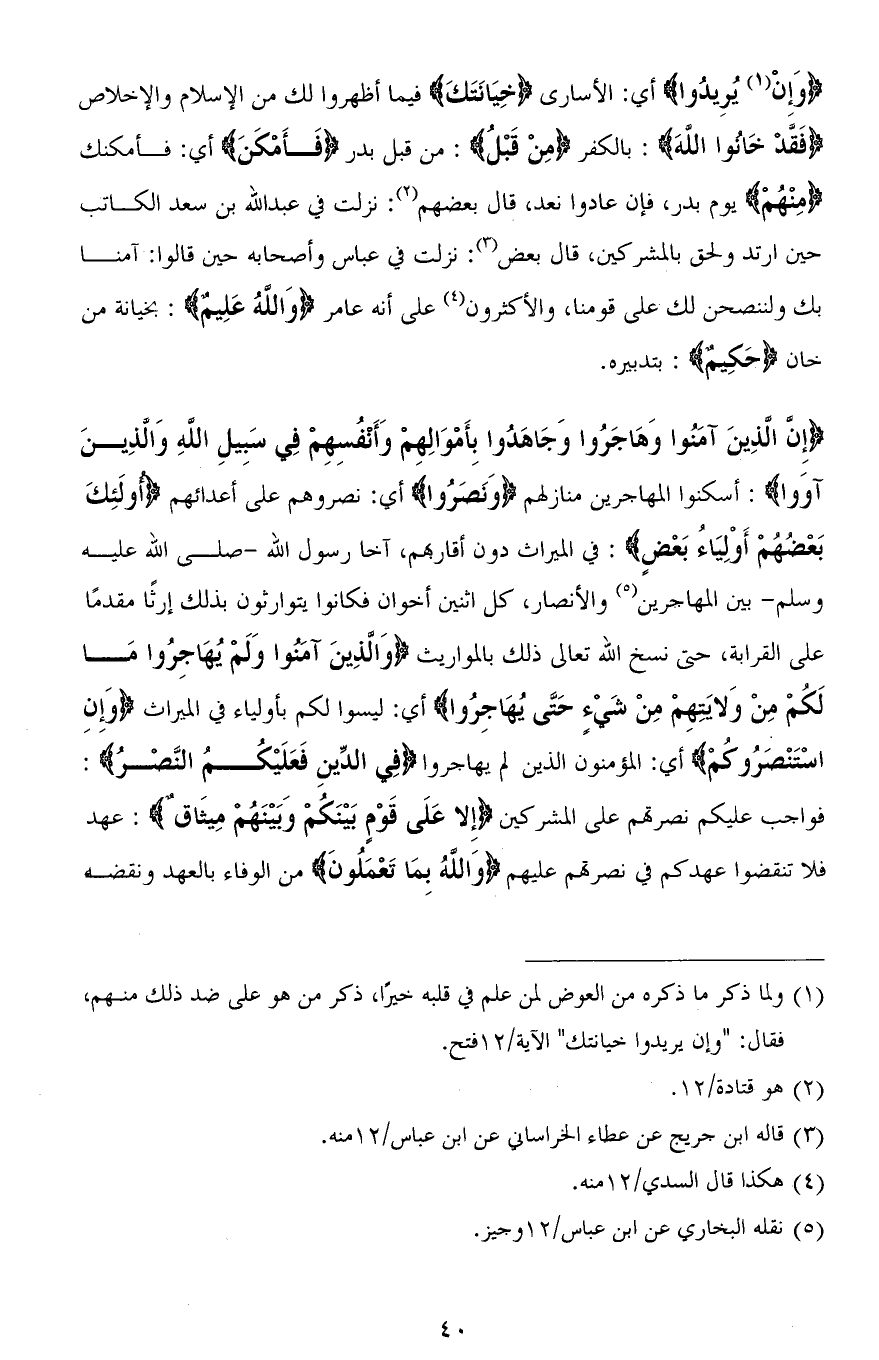 ﴿وَإِنْ(١) يُرِيدُوا﴾ أي: الأسارى ﴿خِيَانَتَكَ﴾ فيما أظهروا لك من الإسلام والإخلاص
﴿فَقَدْ خَانُوا اللَّهَ﴾ : بالكفر ﴿مِنْ قَبْلُ﴾ : من قبل بدر ﴿فَأَمْكَنَ﴾ أي: فأمكنك
﴿مِنْهُمْ﴾ يوم بدر، فإن عادوا نعد، قال بعضهم(٢): نزلت في عبدالله بن سعد الكاتب
حين ارتد ولحق بالمشركين، قال بعض(٣): نزلت في عباس وأصحابه حين قالوا: آمنا
بك ولننصحن لك على قومنا، والأكثرون(٤) على أنه عامر ﴿وَاللَّهُ عَلِيمٌ﴾ : بخيانة من
خان ﴿حَكِيمٌ﴾ : بتدبيره.
﴿إِنَّ الَّذِينَ آمَنُوا وَهَاجَرُوا وَجَاهَدُوا بِأَمْوَالِهِمْ وَأَنْفُسِهِمْ فِي سَبِيلِ اللَّهِ وَالَّذِينَ
آوَوا﴾ : أسكنوا المهاجرين منازلهم ﴿وَنَصَرُوا﴾ أي: نصروهم على أعدائهم ﴿أُولَئِكَ
بَعْضُهُمْ أَوْلِيَاءُ بَعْضٍ﴾ : في الميراث دون أقاربهم، آخا رسول الله -صلى الله عليه
وسلم- بين المهاجرين(٥) والأنصار، كل اثنين أخوان فكانوا يتوارثون بذلك إرثًا مقدمًا
على القرابة، حتى نسخ الله تعالى ذلك بالمواريث ﴿وَالَّذِينَ آمَنُوا وَلَمْ يُهَاجِرُوا مَا
لَكُمْ مِنْ وَلايَتِهِمْ مِنْ شَيْءٍ حَتَّى يُهَاجِرُوا﴾ أي: ليسوا لكم بأولياء في الميراث ﴿وَإِنِ
اسْتَنْصَرُوكُمْ﴾ أي: المؤمنون الذين لم يهاجروا ﴿فِي الدِّينِ فَعَلَيْكُمُ النَّصْرُ﴾ :
فواجب عليكم نصرتهم على المشركين ﴿إِلا عَلَى قَوْمٍ بَيْنَكُمْ وَبَيْنَهُمْ مِيثَاقٌ﴾ : عهد
فلا تنقضوا عهدكم في نصرتهم عليهم ﴿وَاللَّهُ بِمَا تَعْمَلُونَ﴾ من الوفاء بالعهد ونقضه
(١) ولما ذكر ما ذكره من العوض لمن علم في قلبه خيرًا، ذكر من هو على ضد ذلك منهم،
فقال: "وإن يريدوا خيانتك" الآية/١٢فتح.
(٢) هو قتادة/١٢.
(٣) قاله ابن جريج عن عطاء الخراساني عن ابن عباس/١٢منه.
(٤) هكذا قال السدي/١٢منه.
(٥) نقله البخاري عن ابن عباس/١٢وجيز.
٤٠